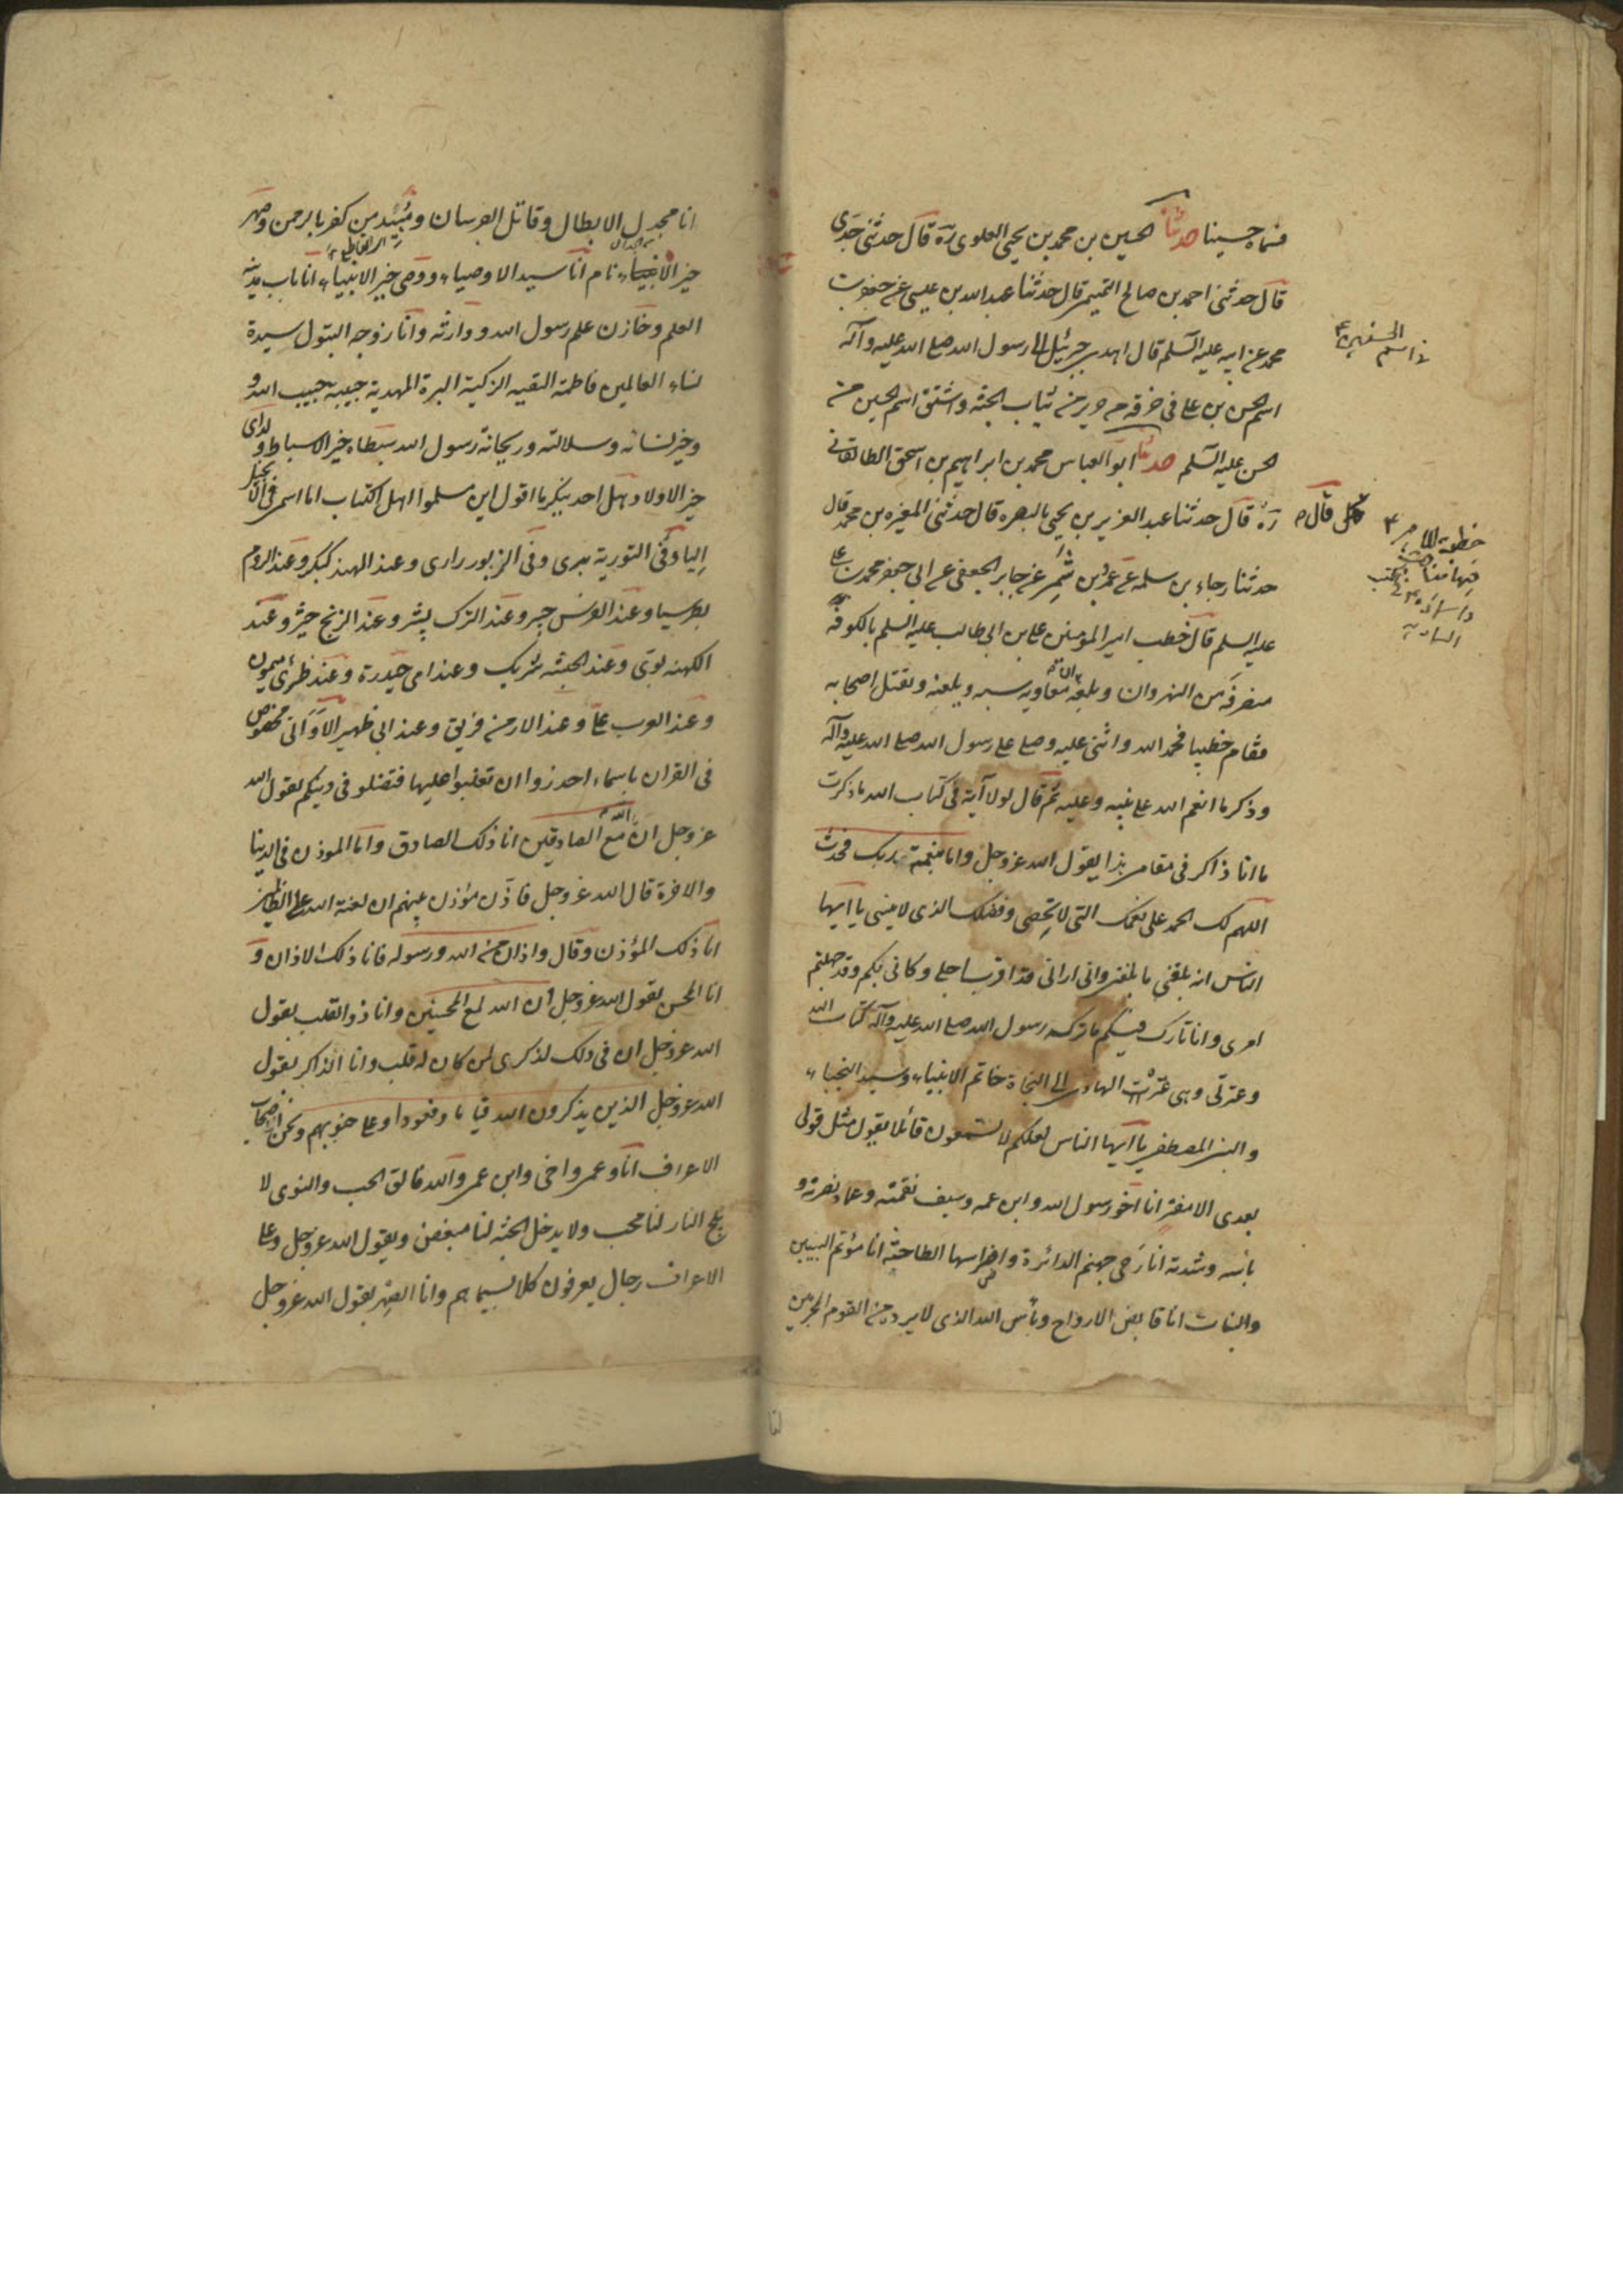 فسماه حسينا حدثنا الحسين بن محمد بن يحيى العلوى ره قال حدثنى جدى
قال حدثنى احمد بن صالح التميمى قال حدثنا عبد الله بن عيسى عن جعفر بن
محمد عن ابيه عليه السلم قال اهدى جبرئيل الى رسول الله صلى الله عليه وآله
اسم الحسن بن على فى خرقه من حرير من ثياب الجنة واشتق اسم الحسين من
الحسن عليه السلم حدثنا ابو العباس محمد بن ابراهيم بن اسحق الطالقانى
ره قال حدثنا عبد العزيز بن يحيى بالبصره قال حدثنى المغيره بن محمد قال
حدثنا رجاء بن سلمه عن عمرو بن شمر عن جابر الجعفى عن ابى جعفر محمد بن على
عليه السلم قال خطب امير المؤمنين على بن ابى طالب عليه السلم بالكوفه
منصرفه من النهروان وبلغه ان معاويه يسبه ويلعنه ويقتل اصحابه
فقام خطيبا فحمد الله واثنى عليه وصلى على رسول الله صلى الله عليه وآله
وذكر ما انعم الله على نبيه وعليه ثم قال لولا آية فى كتاب الله ما ذكرت
ما انا ذاكر فى مقامى هذا يقول الله عز وجل واما بنعمة ربك فحدث
اللهم لك الحمد على نعمك التى لا تحصى وفضلك الذى لا ينسى يا ايها
الناس انه بلغنى ما بلغنى وانى ارانى قد اقترب اجلى وكانى بكم وقد جهلتم
امرى وانا تارك فيكم ما تركه رسول الله صلى الله عليه وآله كتاب الله
وعترتى وهى عترة الهادى الى النجاة خاتم الانبياء وسيد النجباء
والنبى المصطفى يا ايها الناس لعلكم لا تسمعون قائلا يقول مثل قولى
بعدى الا مفتر انا اخو رسول الله وابن عمه وسيف نقمته وعماد نصرته و
بأسه وشدته انا رحى جهنم الدائرة واضراسها الطاحنة انا مؤتم البنين
والبنات انا قابض الارواح وبأس الله الذى لا يرد من القوم المجرمين
فى اسم الحسنين ع
قال
خطبة للامير ع
فيها مناقبه
انا مجدل الابطال وقاتل الفرسان ومبيد من كفر بالرحمن وصهر
خير الانام انا سيد الاوصياء ووصى خير الانبياء انا باب مدينة
العلم وخازن علم رسول الله ووارثه وانا زوج البتول سيدة
نساء العالمين فاطمة التقية الزكية البرة المهدية حبيبة حبيب الله و
وخير بناته وسلالته وريحانة رسول الله سبطاه خير الاسباط وولداى
خير الاولاد هل احد ينكر ما اقول اين مسلموا اهل الكتاب انا اسمى فى الانجيل
اليا وفى التورية برى وفى الزبور رارى وعند الهند كبكر وعند الروم
بطرسيا وعند الفرس جبر وعند الترك بثير وعند الزنج حيثر وعند
الكهنه بوى وعند الحبشه بثريك وعند امى حيدرة وعند ظئرى ميمون
وعند العرب على وعند الارمن فريق وعند ابى ظهير الا وانى مخصوص
فى القران باسماء احذروا ان تغلبوا عليها فتضلو فى دينكم يقول الله
عز وجل ان الله مع الصادقين انا ذلك الصادق وانا الموذن فى الدنيا
والاخرة قال الله عز وجل فاذن مؤذن بينهم ان لعنة الله على الظالمين
انا ذلك المؤذن وقال واذان من الله ورسوله فانا ذلك الاذان و
انا المحسن يقول الله عز وجل ان الله لمع المحسنين وانا ذو القلب يقول
الله عز وجل ان فى ذلك لذكرى لمن كان له قلب وانا الذاكر يقول
الله عز وجل الذين يذكرون الله قياما وقعودا وعلى جنوبهم ونحن اصحاب
الاعراف انا وعمى واخى وابن عمى والله فالق الحب والنوى لا
يلج النار لنا محب ولا يدخل الجنة لنا مبغض ويقول الله عز وجل وعلى
الاعراف رجال يعرفون كلا بسيماهم وانا الصهر يقول الله عز وجل